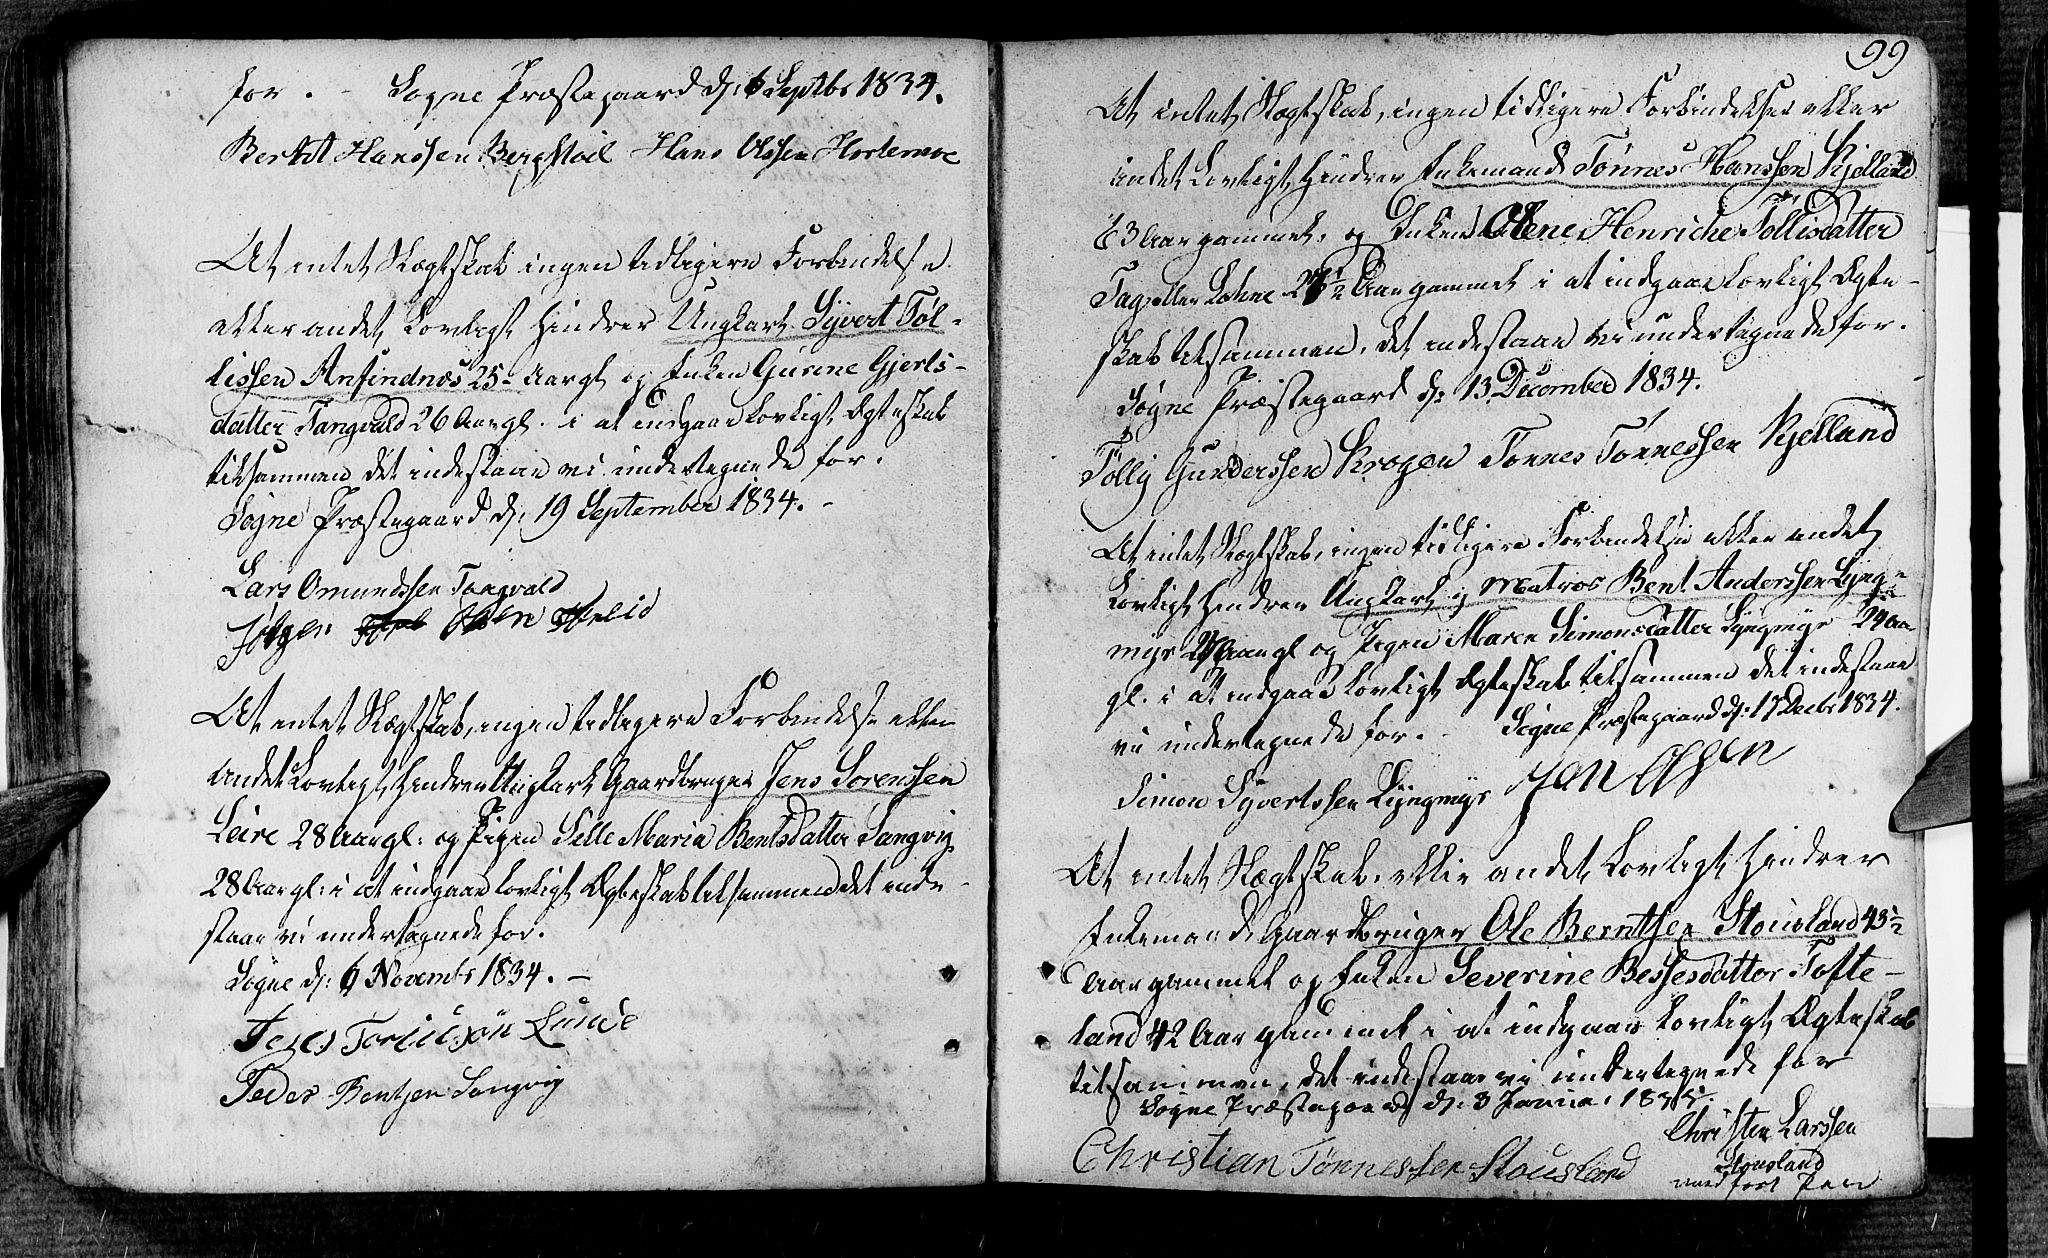 for. - Søgne Præstegaard d: 6 Septbr 1834.
Bertit Hanssen Bergstøil Hans Olssen Hortemoe
At intet Slægtskab ingen tidligere Forbindelse
eller andet Lovligt Hindrer Ungkarl Syvert Tøl-
lissen Anfindnæs 25 Aargl og Enken Gurine Gjerls-
datter Tangvald 26 Aargl. i at indgaae Lovligt Ægteskab
tilsammen det indestaae vi undertegnede for.
Søgne Præstegaard d: 19 September 1834. -
Lars Omundssen Tangvald
Jørgen Olsen
At intet Slægtskab, ingen tidligere Forbindelse eller
andet Lovligt Hindrer Ungkarl Gaardbruger Jens Sørenssen
Leire 28 Aargl: og Pigen Sille Maria Bentsdatter Langvig
28 Aargl: i at indgaae lovligt Ægteskab tilsammen det inde-
staae vi undertegnede for.
Søgne d: 6 Novembr 1834. -
Lunde
Peder Bentsen Langvig
99
At intet Slægtskab, ingen tidligere Forbindelse eller
andet Lovligt Hindrer Enkemand Tønnes Hanssen Kjelland
63 Aar gammel, og Enken Olene Henriche Tøllisdatter
Lohne Aar gammel i at indgaae Lovligt Ægte-
skab tilsammen, det indestaae vi undertegnede for.
Søgne Præstegaard d: 13 December 1834.
Tølly Gunderssen Krogen Tønnes Tønnessen Kjelland
At intet Slægtskab, ingen tidligere Forbindelse eller andet
Lovligt Hindrer Ungkarl og Matros Bent Anderssen Lyng-
myr Aargl og Pigen Maren Simonsdatter Lyngmyr 24 Aar
gl. i at indgaae Lovligt Ægteskab tilsammen det indestaae
vi undertegnede for. - Søgne Præstegaard d: 17 Decbr 1834.
Simon Syvertssen Lyngmyr Jen Olsen
At intet Slægtskab, eller andet Lovligt Hindrer
Enkemand Gaardbruger Ole Berntsen Stousland 43½
Aar gammel og Enken Severine Bessesdatter Tofte-
land 42 Aar gammel i at indgaae lovligt Ægteskab
tilsammen, det indestaae vi undertegnede for
Søgne Præstegaard d: 3 Januar 1835.
Christen Larssen
Christian Tønnessen Stousland Stousland
med ført Pen